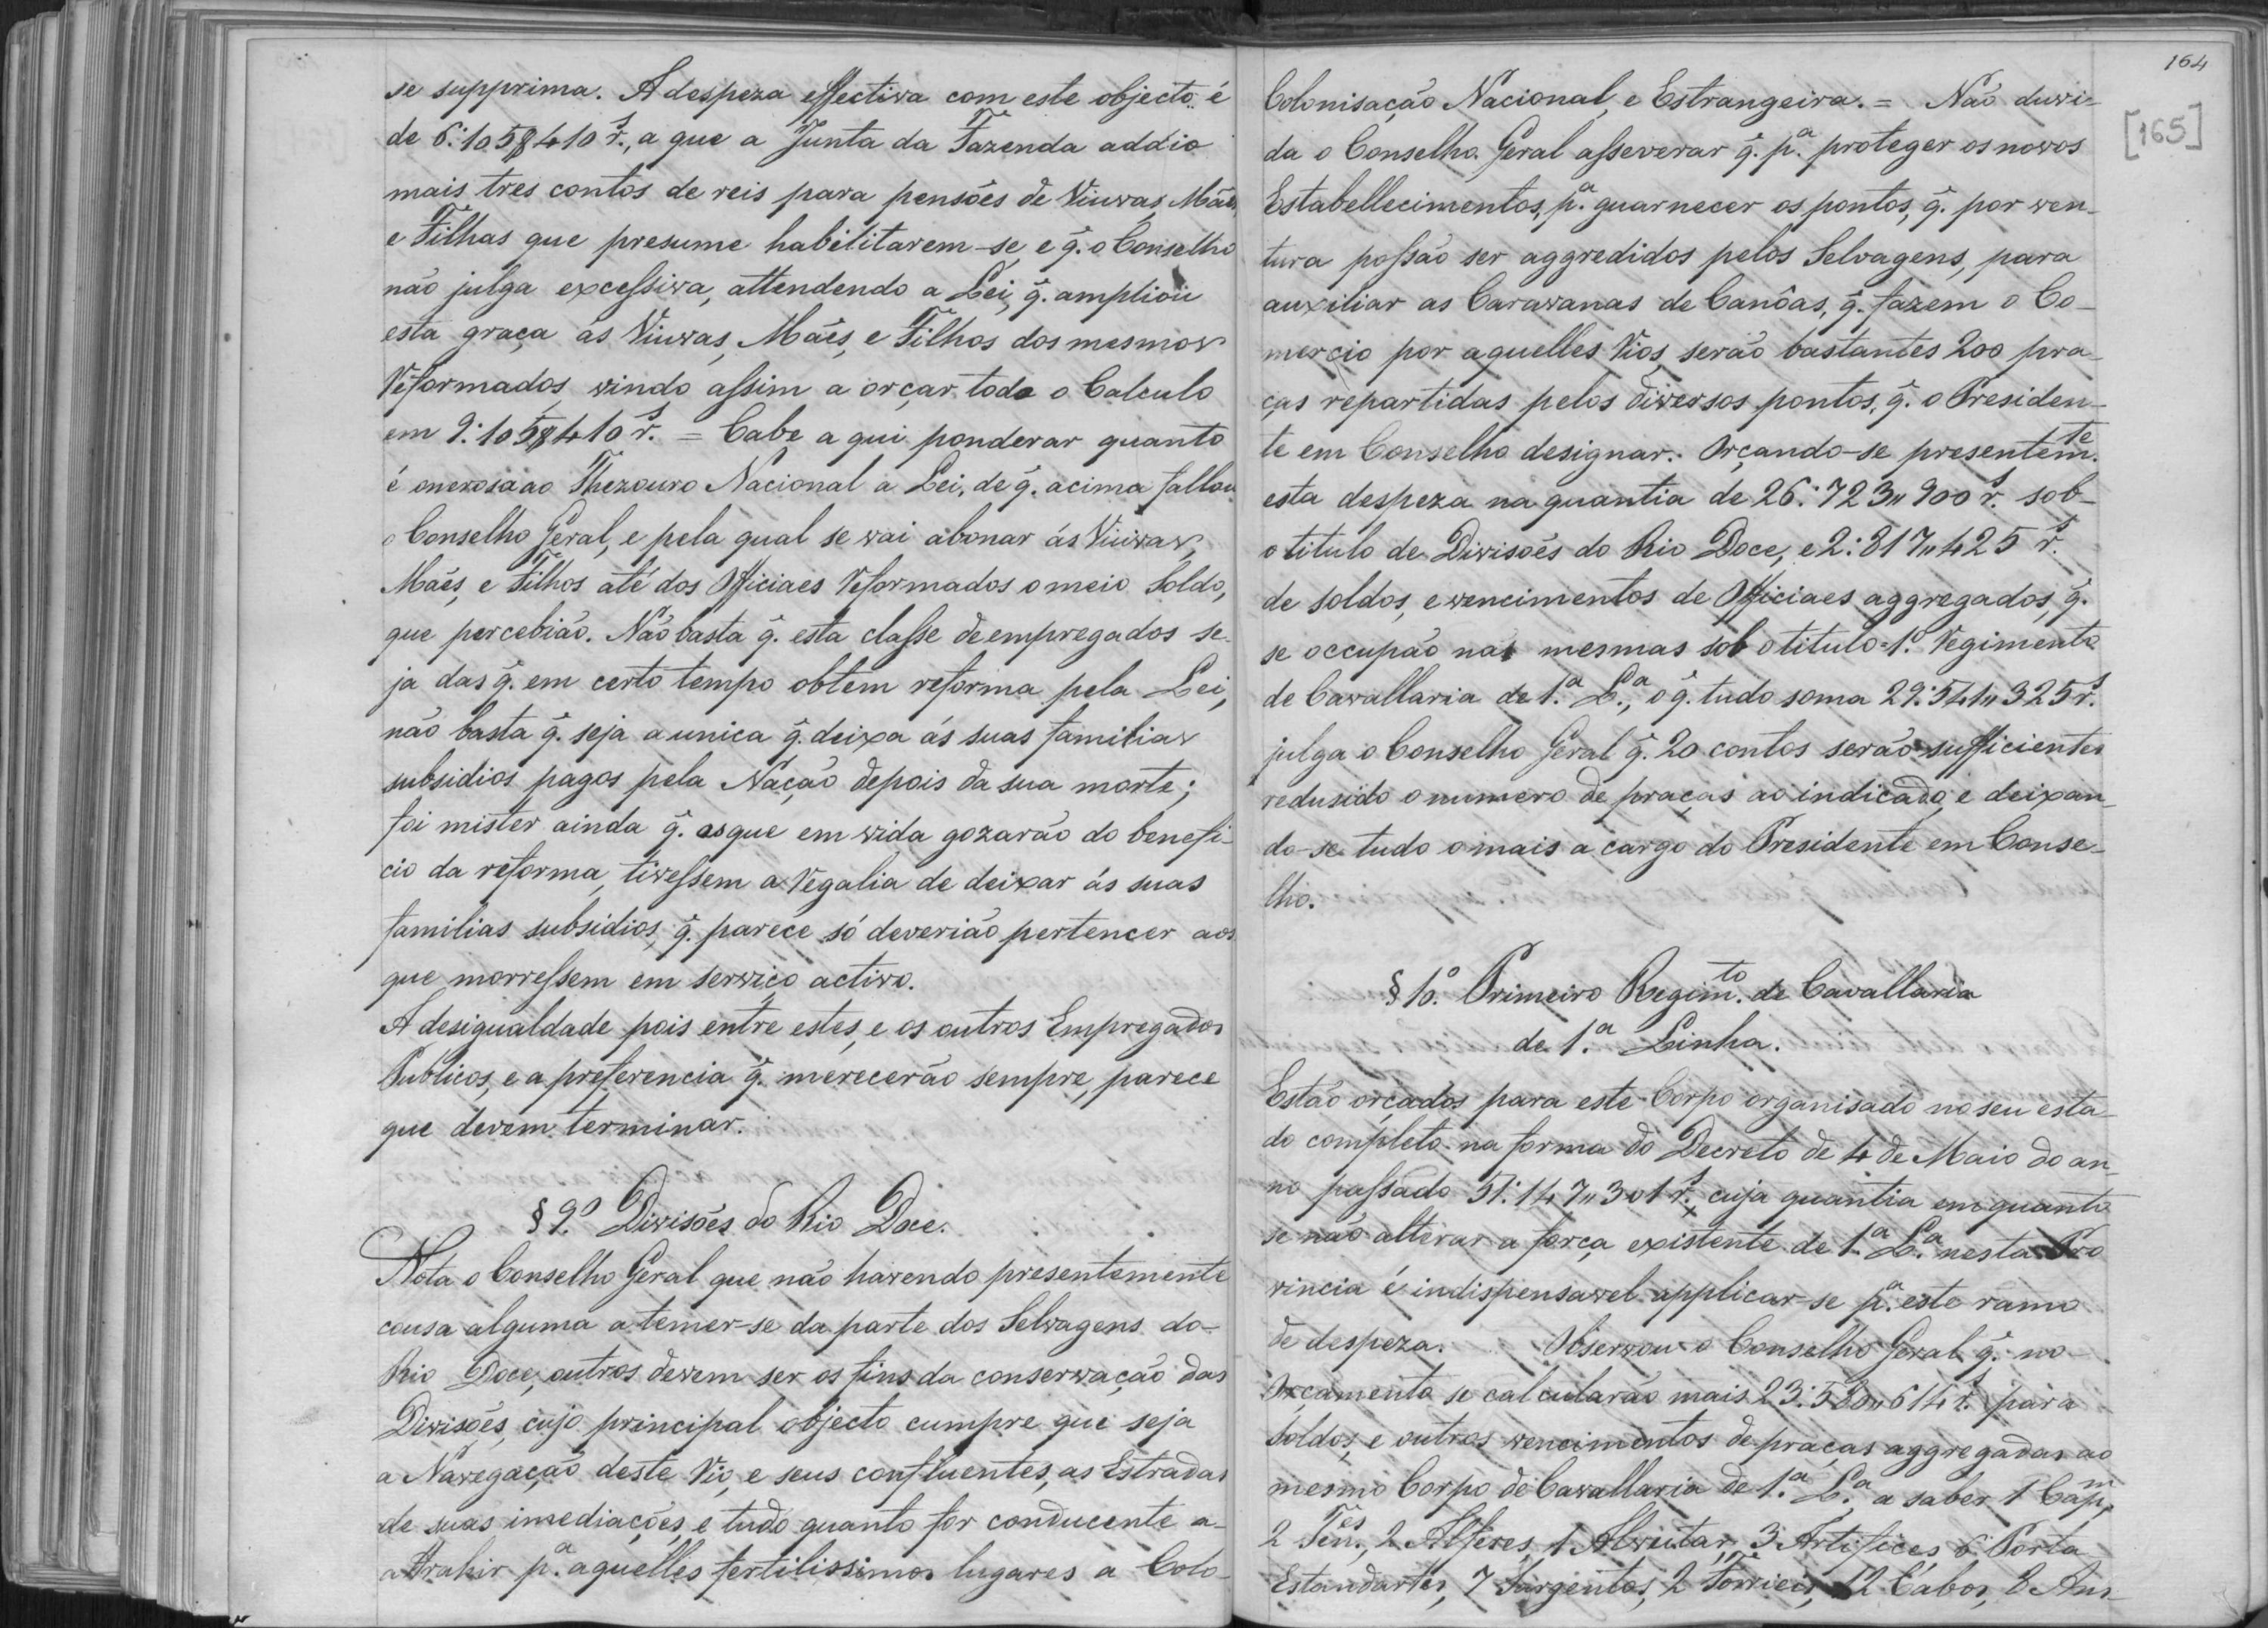 se supprima. A despeza effectiva com este objecto é
de 6:105$410 rs., a que a Junta da Fazenda addio
mais tres contos de reis para pensões de Viuvas, Mães,
e Filhas que presume habilitarem-se, e q̃. o Conselho
não julga excessiva, attendendo a Lei, q̃. ampliou
esta graça ás Viuvas, Mães, e Filhos dos mesmos
Reformados, vindo assim a orçar todo o Calculo
em 9:105$410 rs. = Cabe a qui ponderar quanto
é onerosa ao Thezouro Nacional a Lei, de q̃. acima fallou
o Conselho Geral, e pela qual se vai abonar ás Viuvas,
Mães, e Filhos até dos Officiaes Reformados o meio Soldo,
que percebião. Não basta q̃. esta classe de empregados se-
ja das q̃. em certo tempo obtem reforma pela Lei,
não basta q̃. seja a unica q̃. deixa ás suas familias
subsidios pagos pela Nação depois da sua morte;
foi mister ainda q̃. os que em vida gozarão do benefi-
cio da reforma, tivessem a Regalia de deixar ás suas
familias subsidios, q̃. parece só deverião pertencer aos
que morressem em serviço activo.
A desigualdade pois entre estes, e os outros Empregados
Publicos, e a preferencia q̃. merecerão sempre, parece
que devem terminar.
§ 9.º Divisões do Rio Doce.
Nota o Conselho Geral que não havendo presentemente
cousa alguma a temer-se da parte dos Selvagens do
Rio Doce, outros devem ser os fins da conservação das
Divisões, cujo principal objecto cumpre que seja
a Navegação deste Rio, e seus confluentes, as Estradas
de suas imediações, e tudo quanto for conducente a
attrahir p.ª aquelles fertilissimos lugares a Colo-
164
[165]
Colonisação Nacional, e Estrangeira. = Não duvi-
da o Conselho Geral asseverar q̃. p.ª proteger os novos
Estabellecimentos, p.ª guarnecer os pontos, q̃. por ven-
tura possão ser aggredidos pelos Selvagens, para
auxiliar as Caravanas de Canôas, q̃. fazem o Co-
mercio por aquelles Rios, serão bastantes 200 pra-
ças repartidas pelos diversos pontos, q̃. o Presiden-
te em Conselho designar. Orçando-se presentem.te
esta despeza na quantia de 26:723"900 rs. sob
o titulo de Divisões do Rio Doce, e 2:817"425 rs.
de soldos, e vencimentos de Officiaes aggregados, q̃.
se occupão nas mesmas sob o titulo = 1.º Regimento
de Cavallaria de 1.ª L.ª, o q̃. tudo soma 29:541"325 rs.
julga o Conselho Geral q̃. 20 contos serão sufficientes
redusido o numero de praças ao indicado, e deixan-
do-se tudo o mais a cargo do Presidente em Conse-
lho.
§ 10.º Primeiro Regim.to de Cavallaria
de 1.ª Linha.
Estão orçados para este Corpo organisado no seu esta-
do completo na forma do Decreto de 4 de Maio do an-
no passado 51:147"301 rs., cuja quantia em quanto
se não alterar a força existente de 1.ª L.ª nesta Pro
vincia é indispensavel applicar-se p.ª este ramo
de despeza. Observou o Conselho Geral q̃. no
Orçamento se calcularão mais 23:580"614 rs. para
soldos, e outros vencimentos de praças aggregadas ao
mesmo Corpo de Cavallaria de 1.ª L.ª a saber 1 Cap.m,
2 Ten.es, 2 Alferes, 1 Alveitar, 3 Artifices, 6 Porta
Estandartes, 7 Sargentos, 2 Forrieis, 12 Cabos, 8 Ans-